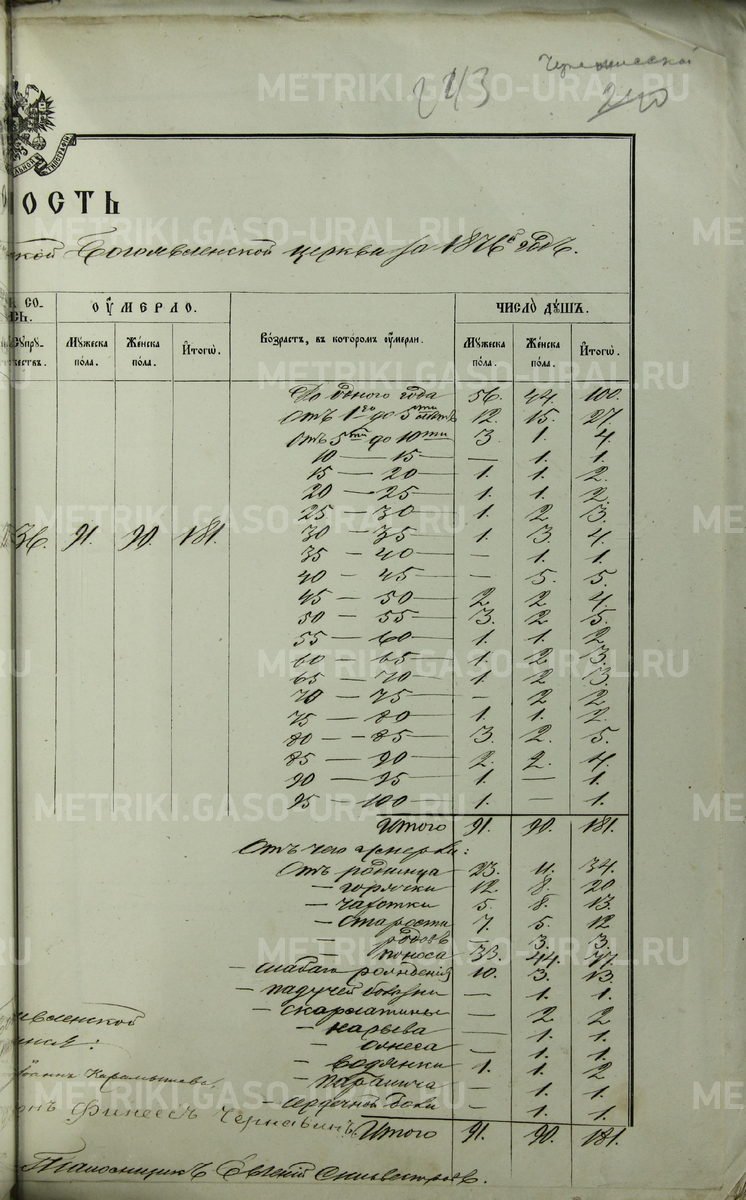 Черемисской
243
240
ОСТЬ
Богоявленской церкви за 1876й годъ.
ОУМЕРЛО.
ЧИСЛО ДУШЪ.
Мужеска пола.
Женска пола.
Итогω.
Возрастъ, въ которомъ оумерли.
Мужеска пола.
Женска пола.
Итогω.
До одного года 56. 44. 100.
Отъ 1го до 5ти лѣтъ 12. 15. 27.
Отъ 5ти до 10ти 3. 1. 4.
10 — 15 — 1. 1.
15 — 20 1. 1. 2.
20 — 25 1. 1. 2.
25 — 30 1. 2. 3.
36. 91. 90. 181. 30 — 35 1. 3. 4.
35 — 40 — 1. 1.
40 — 45 — 5. 5.
45 — 50 2. 2. 4.
50 — 55 3. 2. 5.
55 — 60 1. 1. 2.
60 — 65 1. 2. 3.
65 — 70 1. 2. 3.
70 — 75 — 2. 2.
75 — 80 1. 1. 2.
80 — 85 3. 2. 5.
85 — 90 2. 2. 4.
90 — 95 1. — 1.
95 — 100 1. — 1.
Итого 91. 90. 181.
Отъ чего умерли:
Отъ родимца 23. 11. 34.
— горячки 12. 8. 20
— чахотки 5. 8. 13.
— старости 7. 5. 12
— родовъ — 3. 3.
— поноса 33. 44. 77.
— слабаго рожденія 10. 3. 13.
— падучей болѣзни — 1. 1.
— скарлатины — 2. 2
— нарыва — 1. 1.
— — 1. 1.
— водянки 1. 1. 2
— паралича — 1. 1.
— сердечной боли — 1. 1.
Итого 91. 90. 181.
Финеесъ Чернавинъ
Псаломщикъ Евгеній Сильвестровъ.
METRIKI.GASO-URAL.RU